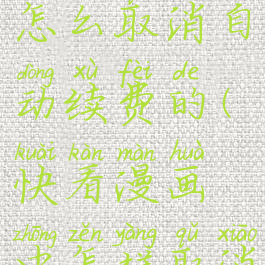 怎么取消自
dòng xù fèi de
动续费的(
kuài kàn màn huà
快看漫画
zhōng zěn yàng qǔ xiāo
中怎样取消